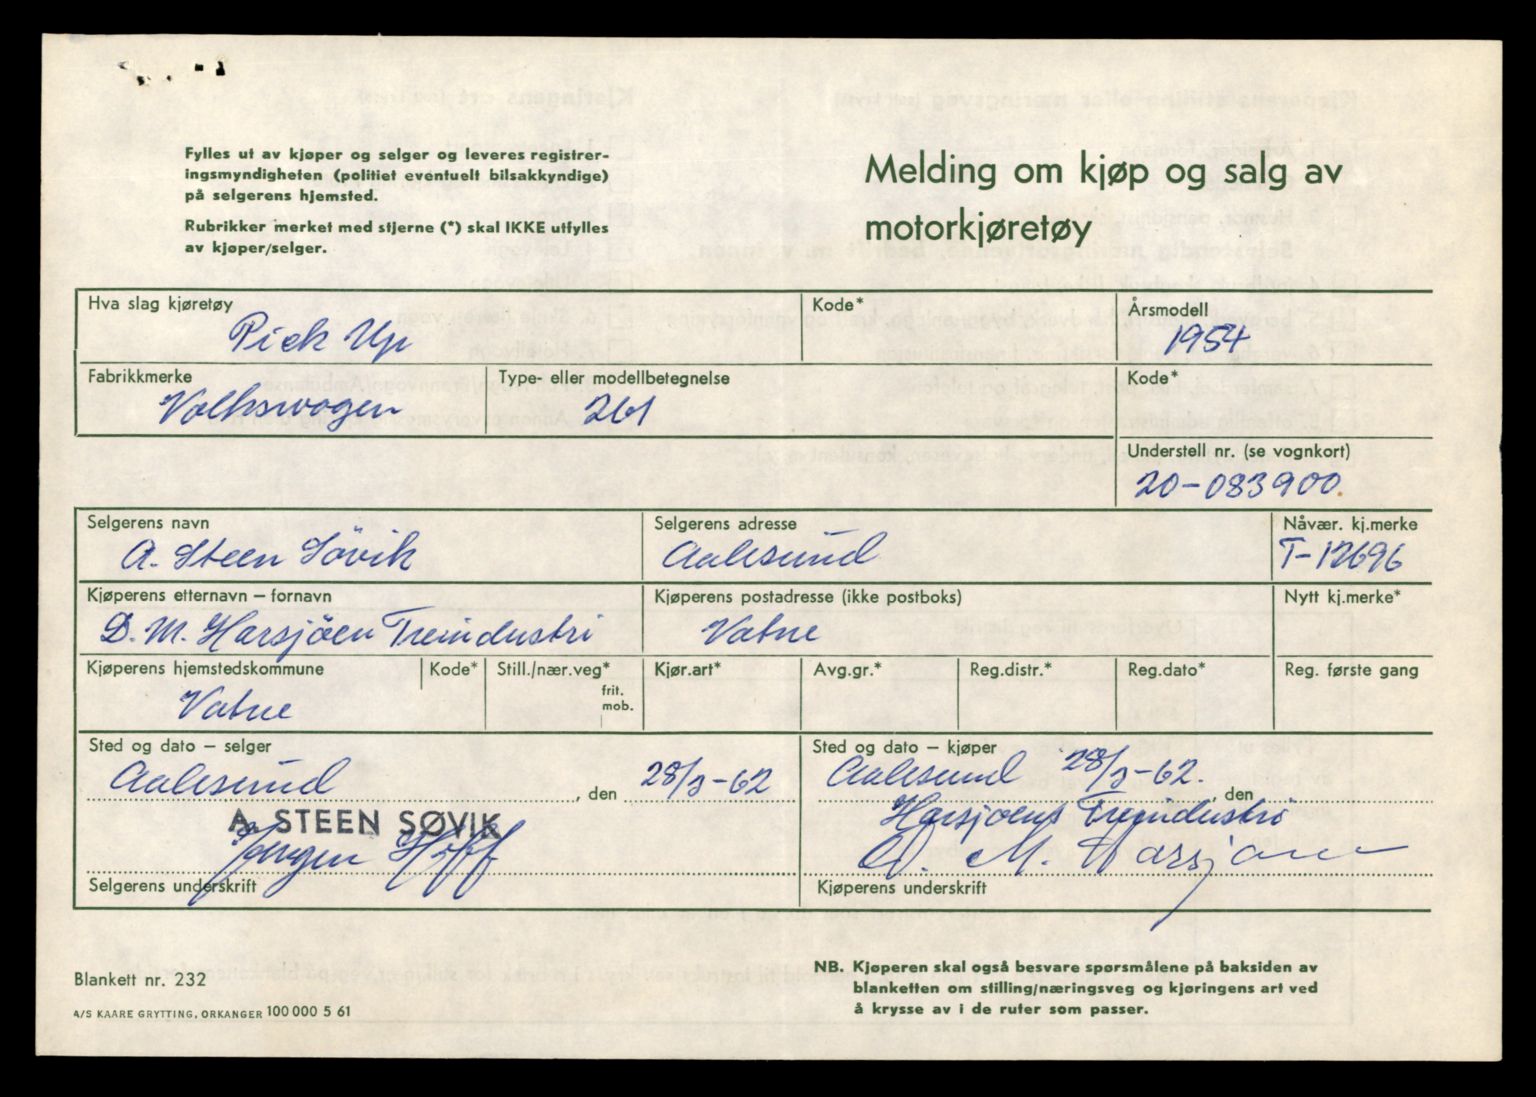 Fylles ut av kjøper og selger og leveres registrer-
ingsmyndigheten (politiet eventuelt bilsakkyndige)
på selgerens hjemsted.
Rubrikker merket med stjerne (*) skal IKKE utfylles
av kjøper/selger.
Melding om kjøp og salg av
motorkjøretøy
Hva slag kjøretøy
Kode*
Årsmodell
Pick Up
1954
Fabrikkmerke
Type- eller modellbetegnelse
Kode*
Volkswagen
261
Understell nr. (se vognkort)
20-083900
Selgerens navn
Selgerens adresse
Nåvær. kj.merke
A. Steen Sövik
Aalesund
T-12696
Kjøperens etternavn – fornavn
Kjøperens postadresse (ikke postboks)
Nytt kj.merke*
D. M. Harsjöen Treindustri
Vatne
Kjøperens hjemstedskommune
Kode*
Still./nær.veg*
frit.
mob.
Kjør.art*
Avg.gr.*
Reg.distr.*
Reg.dato*
Reg. første gang
Vatne
Sted og dato – selger
Sted og dato – kjøper
Aalesund, den 28/3-62
Aalesund 28/3-62.
den
A. STEEN SØVIK
Jørgen Hoff
Harsjoens Treindustri
D. M. Harsjøen
Selgerens underskrift
Kjøperens underskrift
Blankett nr. 232
A/S KAARE GRYTTING, ORKANGER 100 000 5 61
NB. Kjøperen skal også besvare spørsmålene på baksiden av
blanketten om stilling/næringsveg og kjøringens art ved
å krysse av i de ruter som passer.